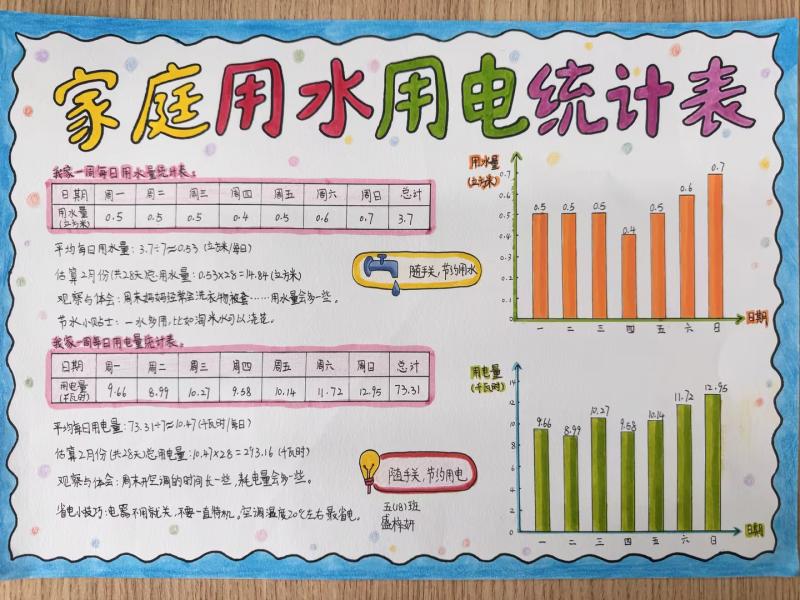 家庭用水用电统计表
我家一周每日用水量统计表。
日期 周一 周二 周三 周四 周五 周六 周日 总计
用水量(立方米) 0.5 0.5 0.5 0.4 0.5 0.6 0.7 3.7
平均每日用水量：3.7÷7≈0.53(立方米/每日)
估算2月份(共28天)总用水量：0.53×28=14.84(立方米)
观察与体会：周末妈妈经常会洗衣物被套……用水量会多一些。
节水小贴士：一水多用,比如淘米水可以浇花。
随手关,节约用水
我家一周每日用电量统计表。
日期 周一 周二 周三 周四 周五 周六 周日 总计
用电量(千瓦时) 9.66 8.99 10.27 9.58 10.14 11.72 12.95 73.31
平均每日用电量：73.31÷7≈10.47(千瓦时/每日)
估算2月份(共28天)总用电量：10.47×28=293.16(千瓦时)
观察与体会：周末开空调的时间长一些,耗电量会多一些。
省电小技巧：电器不用就关,不要一直待机。空调温度20℃左右最省电。
随手关,节约用电
五(18)班
盛梓妍
用水量
(立方米)
0.7
0.6
0.5
0.4
0.3
0.2
0.1
0
0.5 0.5 0.5 0.4 0.5 0.6 0.7
一 二 三 四 五 六 日
日期
用电量
(千瓦时)
14
12
10
8
6
4
2
0
9.66 8.99 10.27 9.58 10.14 11.72 12.95
一 二 三 四 五 六 日
日期